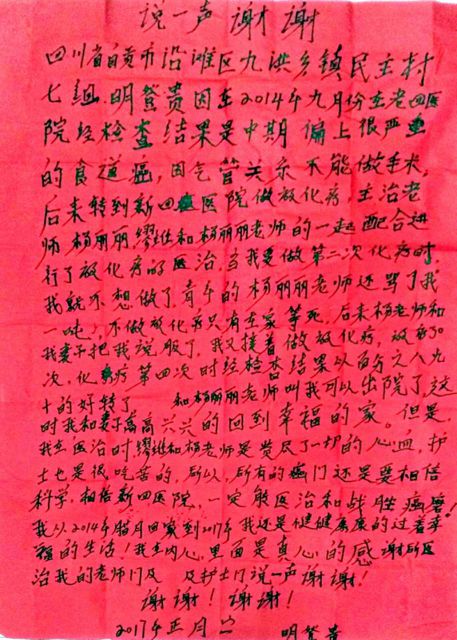 说一声谢谢
四川省自贡市沿滩区九洪乡镇民主村
七组.明登贵因在2014年九月份在老四医
院经检查结果是中期偏上很严重
的食道癌,因气管关系不能做手术,
后来转到新四医院做放化疗,主治老
师杨丽丽,缪继和杨丽丽老师的一起配合进
行了放化疗的医治,当我要做第二次化疗时
我就不想做了,青年的杨丽丽老师还骂了我
一吨,不做放化疗只有在家等死,后来杨老师和
我妻子把我说服了,我又接着做放化疗,放疗30
次,化疗第四次时经检查结果以百分之八九
十的好转了 和杨丽丽老师叫我可以出院了,这
时我和妻子高高兴兴的回到幸福的家。但是,
我在医治时缪继和杨老师是费尽了一切的心血,护
士也是很吃苦的,所以,所有的癌门还是要相信
科学,相信新四医院,一定能医治和战胜癌磨!
我从2014年腊月回家到2017年我还是健健康康的过着幸
福的生活!我在内心里面是真心的感谢所医
治我的老师门及 及护士门说一声谢谢!
谢谢!谢谢!
2017年正月六 明登贵